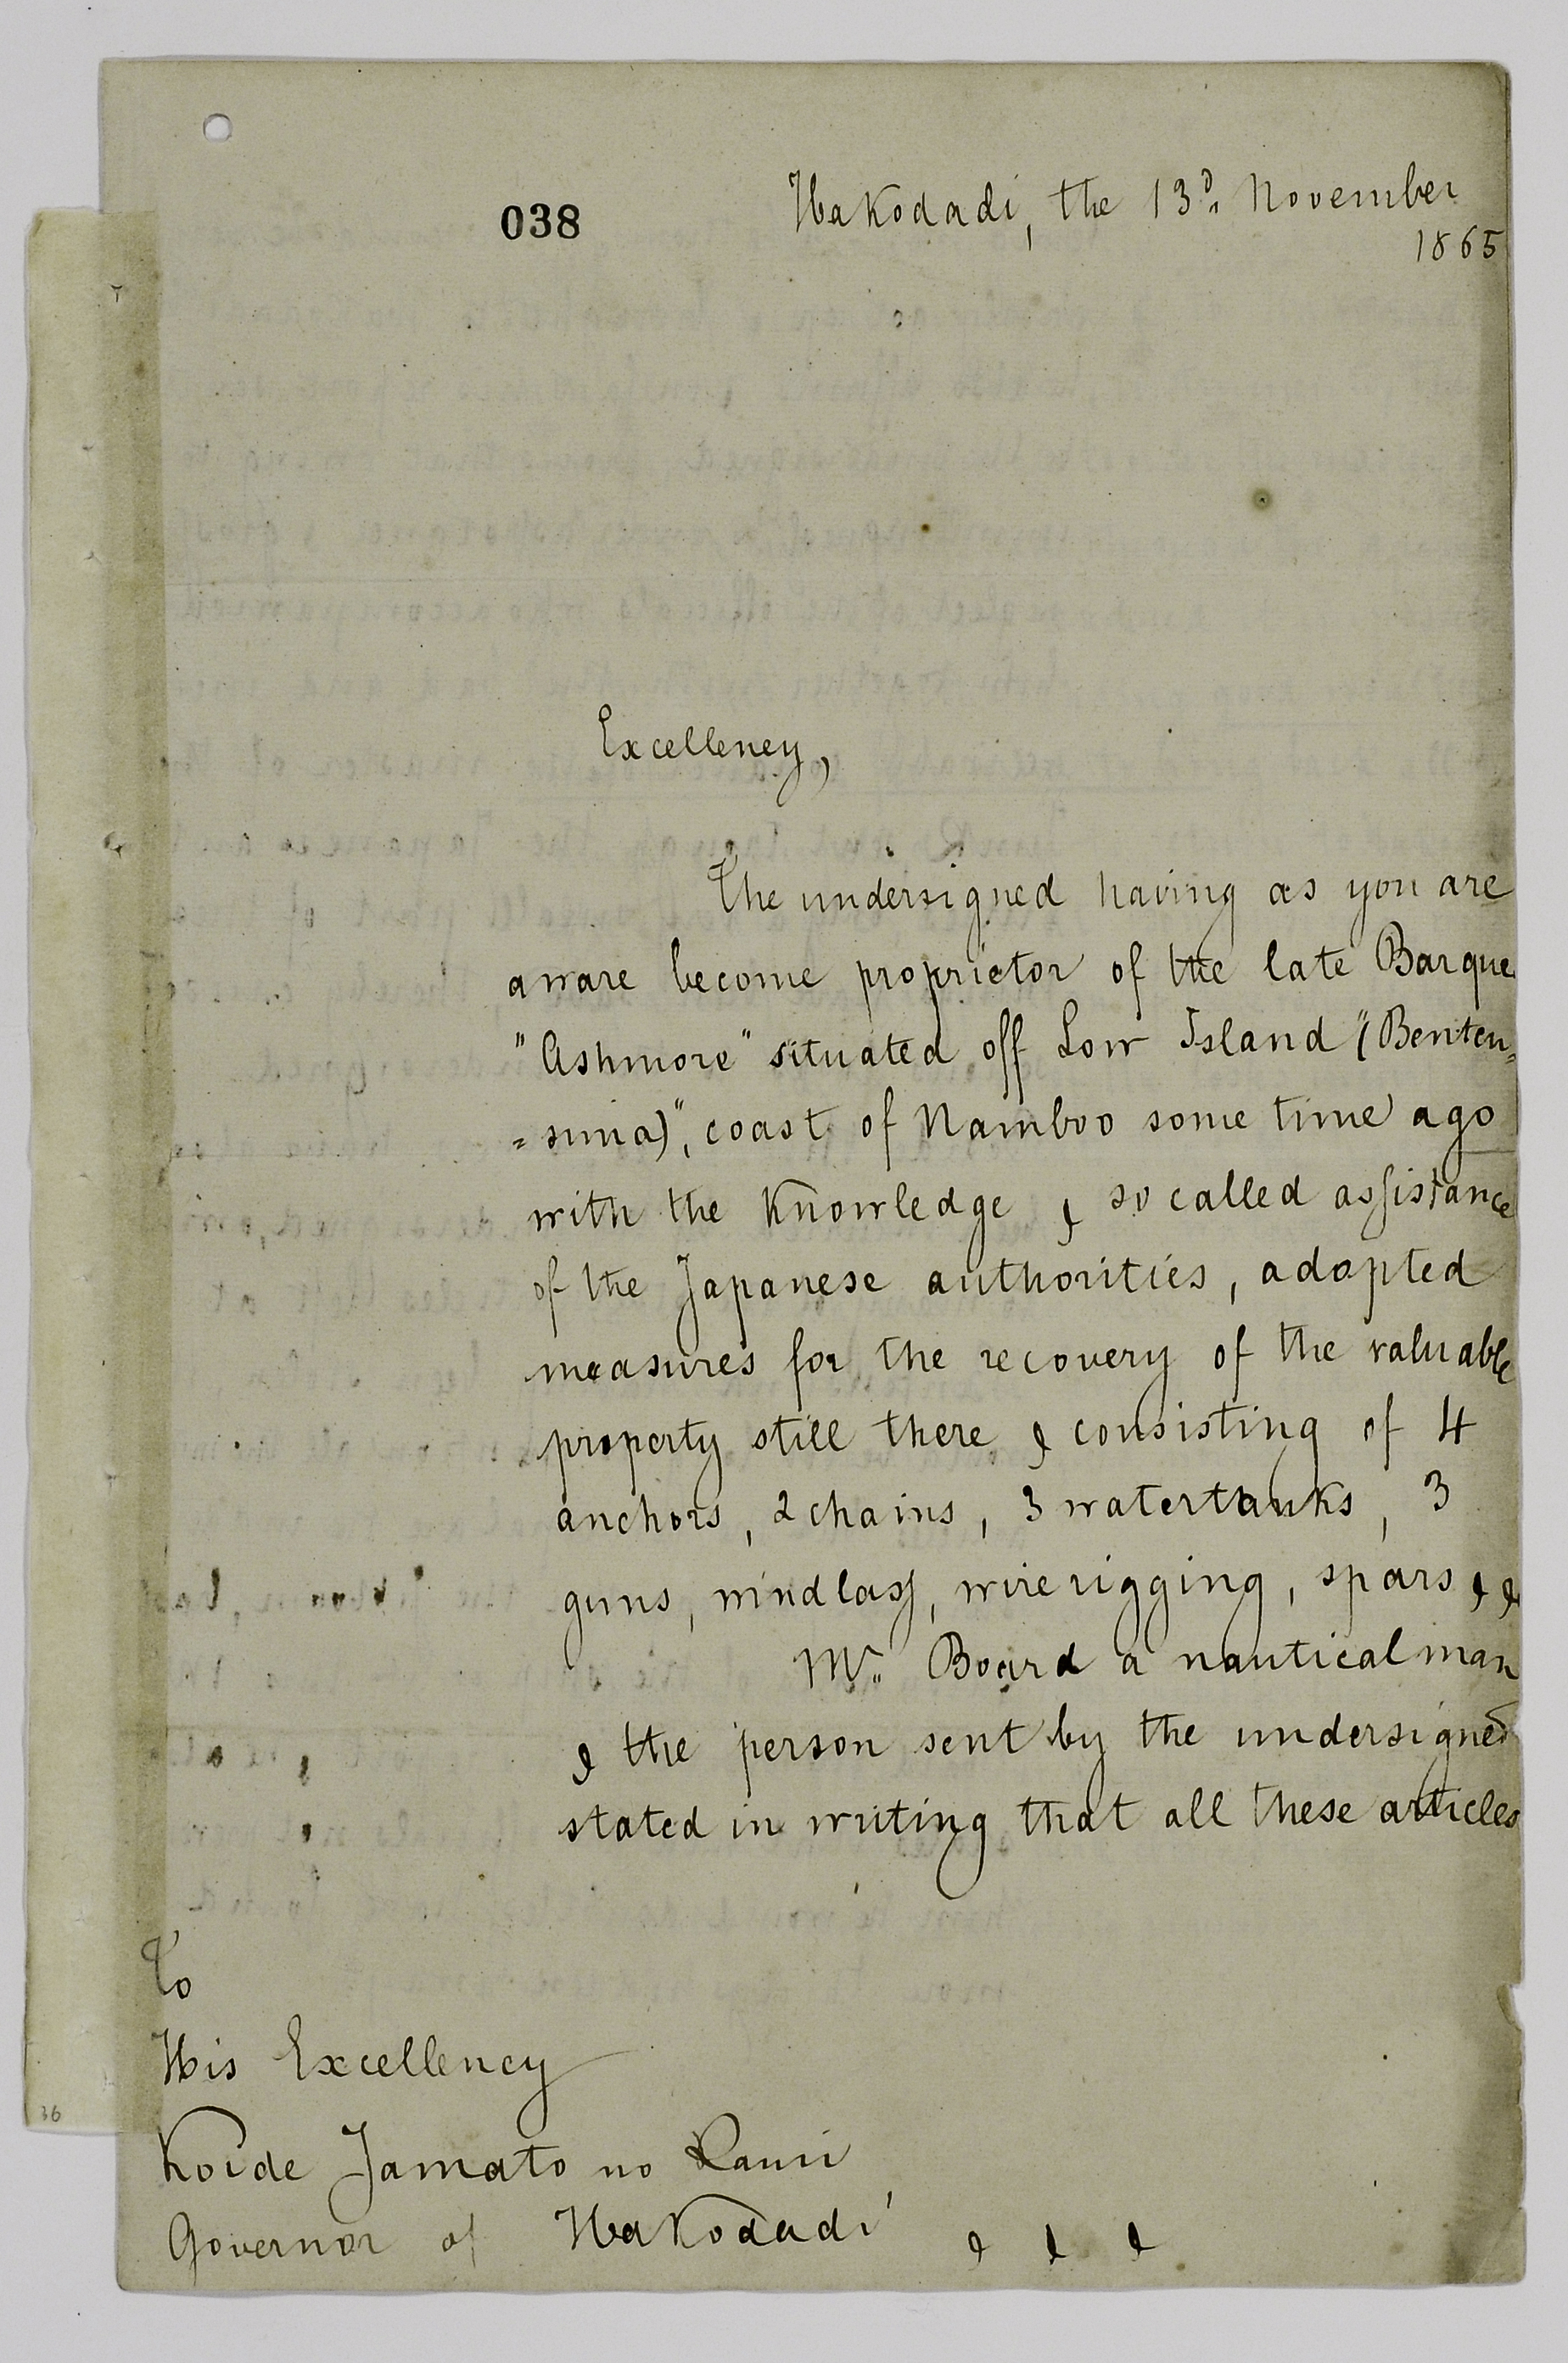 038
Hakodadi, the 13d. November
1865
Excellency,
The undersigned having as you are
aware become proprietor of the late Barque
"Ashmore" situated off Low Island "(Benten=
=sima)", coast of Namboo some time ago
with the Knowledge & so called assistance
of the Japanese authorities, adopted
measures for the recovery of the valuable
property still there & consisting of 4
anchors, 2 chains, 3 watertanks, 3
guns, windlass, wire rigging, spars & &
Mr. Board a nautical man
& the person sent by the undersigned
stated in writing that all these articles
To
His Excellency
Koide Jamato no Kami
Governor of Hakodadi & & &
36